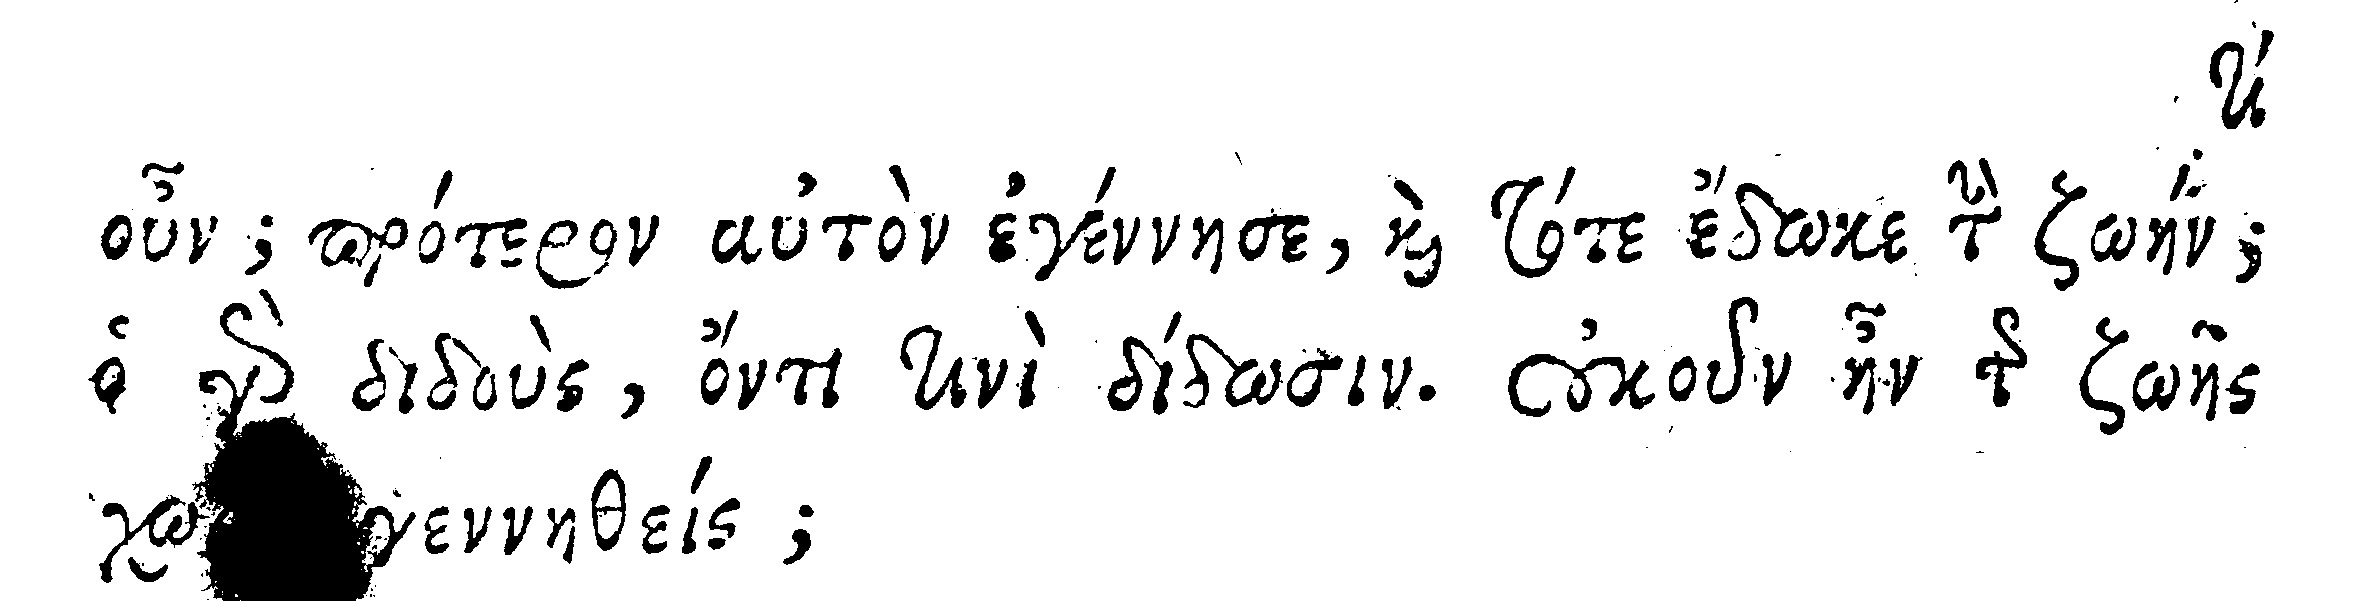 τί
οὖν; πρότερον αὐτὸν ἐγέννησε, καὶ τότε ἔδωκε τὴν ζωήν;
ὁ γὰρ διδοὺς, ὄντι τινὶ δίδωσιν. οὐκοῦν ἦν τῆς ζωῆς
γεννηθείς;